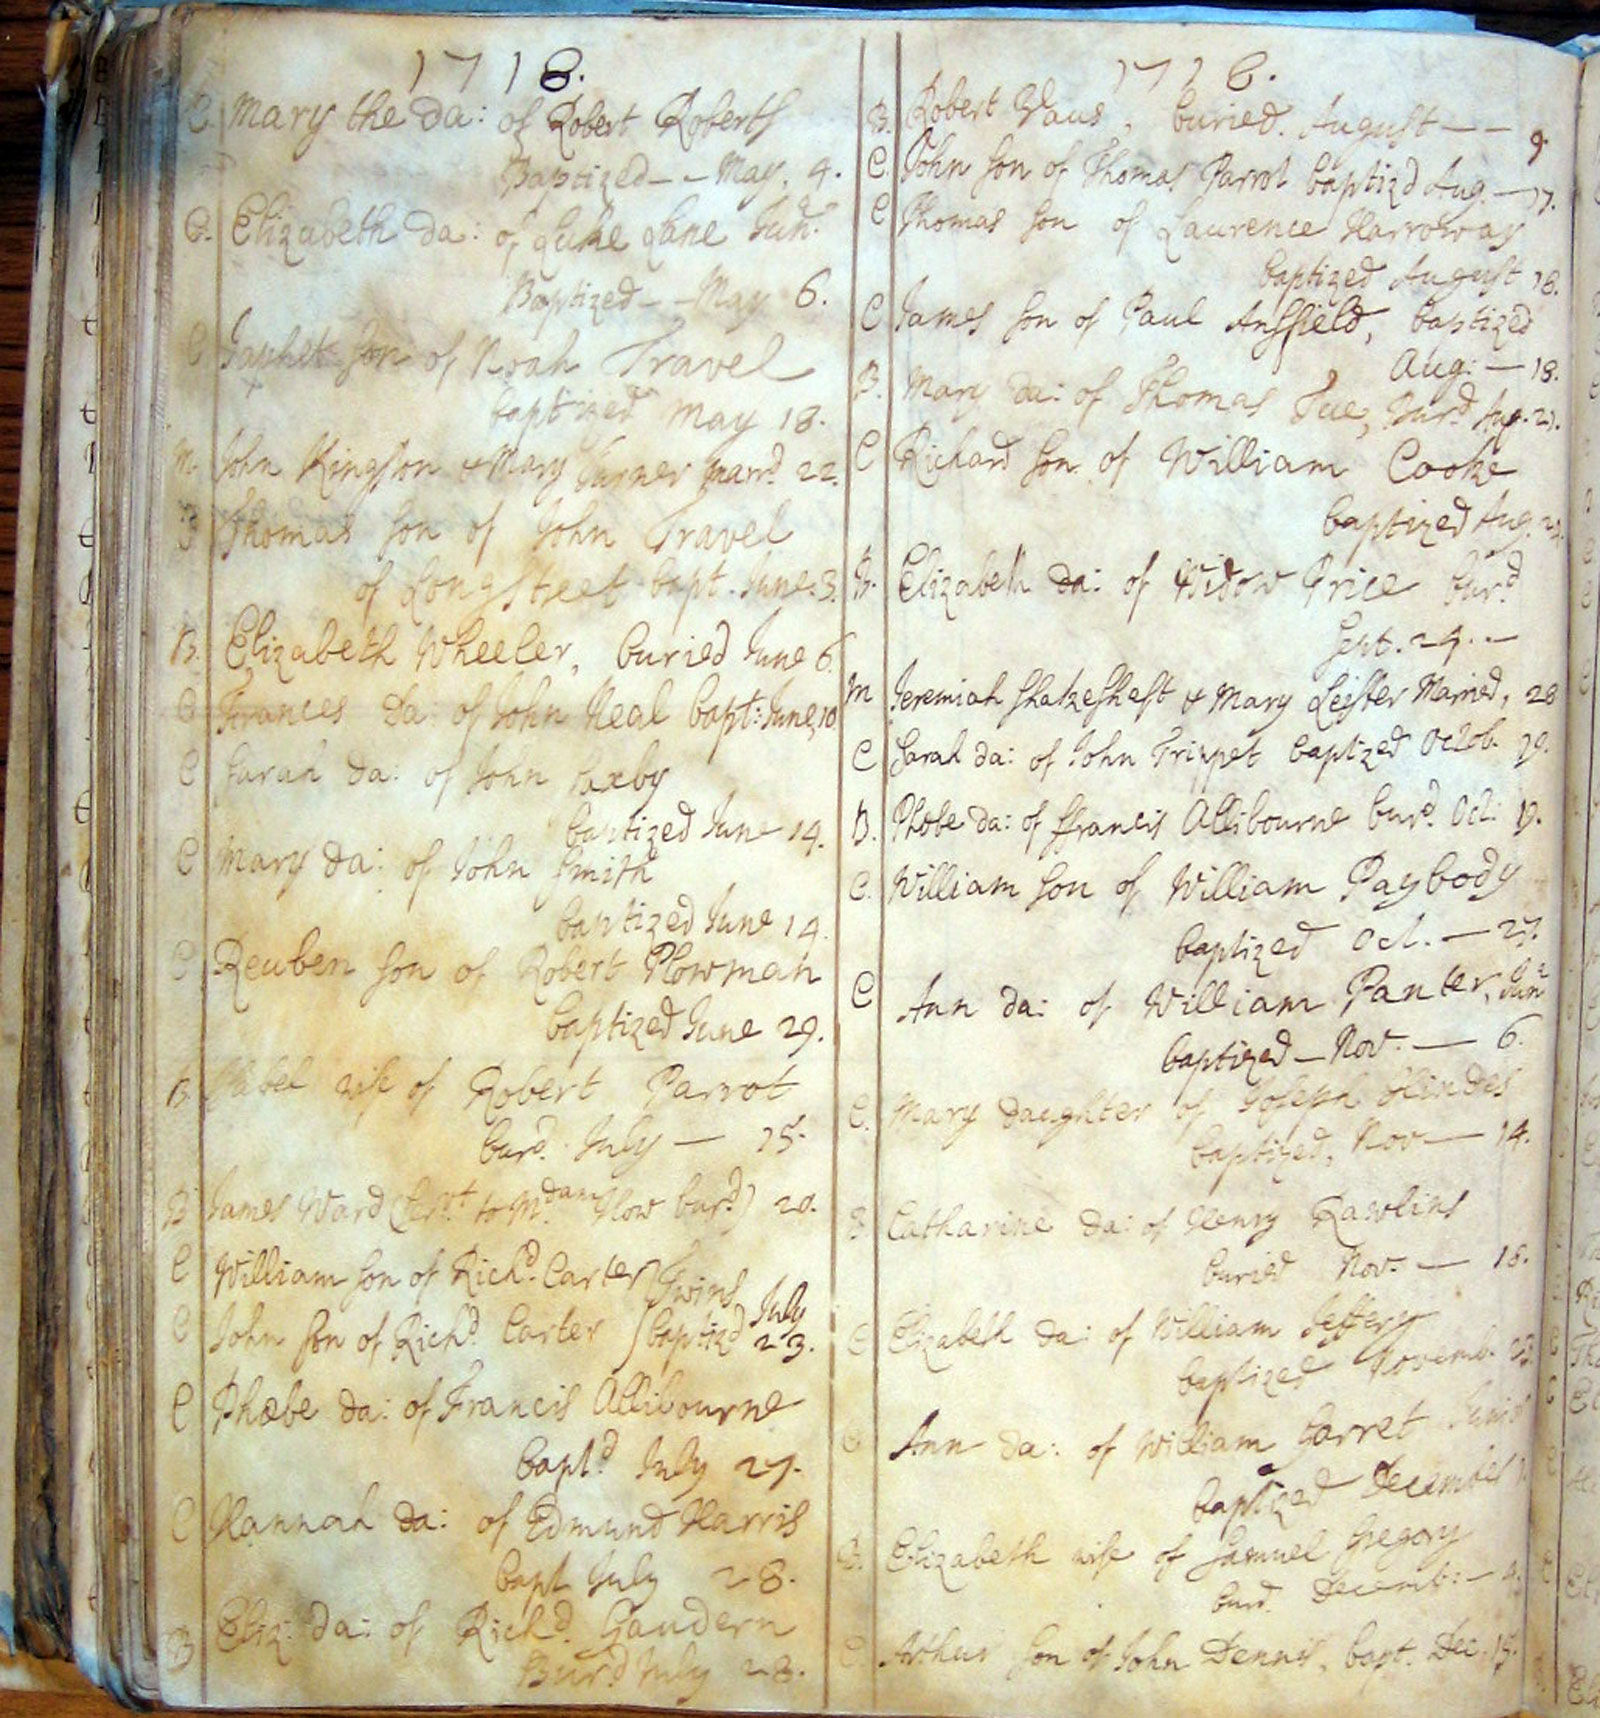 1718.
C. Mary the da: of Robert Roberts
Baptized - - May. 4.
C. Elizabeth da: of Luke Lane Junr.
Baptized - - May 6.
C Japhet son of Noah Travel
baptized May 18.
M. John Kingston & Mary Turner marrd. 22.
Thomas son of John Travel
of Longstreet bapt. June. 3.
B. Elizabeth Wheeler, buried June 6.
C Frances Da: of John Neal bapt: June, 10
C Sarah da: of John Saxby
baptized June 14.
C Mary da: of John Smith
baptized June 14.
C Reuben son of Robert Plowman
baptized June 29.
B. wife of Robert Parrot
burd. July — 15.
B James Ward (Servt. to Mdam. burd.) 20.
C William son of Richd. Carter } Twins
C John son of Richd. Carter } baptizd July 23.
C Phœbe da: of Francis Allibourne
baptd. July 27.
C Hannah da: of Edmund Harris
bapt July 28.
B Eliz: da: of Richd. Gaudern
Burd July 28.
1718.
B. Robert Vaus, buried. August - - 9.
C. John son of Thomas Parrot baptizd Aug. — 17.
C Thomas son of Laurence Harroway
baptized August 18.
C James son of Paul Ansfield, baptized
Aug: — 18.
B. Mary da: of Thomas Tue, Burd. Aug. 21.
C Richard son of William Cooke
baptized Aug.
B. Elizabeth da: of Widow Price burd
Sept. 24. —
M Jeremiah Shakeshaft & Mary Leister Married, 28
C Sarah da: of John Trippet baptized Octob. 19.
B. Phœbe da: of ffrancis Allibourne burd. Oct: 19.
C. William son of William Paybody
baptized Oct. — 27.
C Ann da: of William Panter, Junr
baptized — Nov. — 6.
C. Mary daughter of Joseph Hindes
baptized, Nov — 14.
B Catharine da: of Henry Rawlins
buried Nov. — 18.
C Elizabeth da: of William Jeffery
baptized Novemb. 23.
C Ann da: of William Garret Junior
baptized December
B. Elizabeth wife of Samuel Gregory
burd. Decemb: — 4.
C. Arthur son of John Dennis, bapt. Dec. 15.